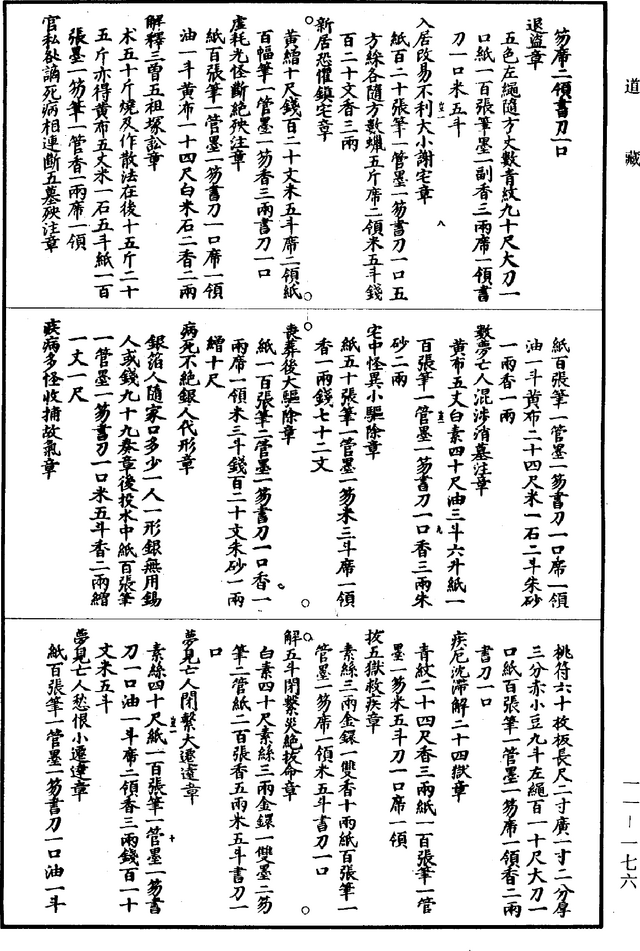 道藏
笏席二領書刀一口
退盜章
五色左繩隨方丈數青紋九十尺大刀一
口紙一百張筆墨一副香三兩席一領書
刀一口米五斗
入居改易不利大小謝宅章
紙百二十張筆一管墨一笏書刀一口五
方綵各隨方數蠟五斤席二領米五斗錢
百二十文香三兩
新居恐懼鎮宅章
黃繒十尺錢百二十文米五斗席二領紙
百幅筆一管墨一笏香三兩書刀一口
虛耗光怪斷絕殃注章
紙百張筆一管墨一笏書刀一口席一領
油一斗黃布一十四尺白米一石二香二兩
解釋三曾五祖塚訟章
木五十斤燒及作散法在後十五斤二十
五斤亦得黃布五丈米一石五斗紙一百
張墨一笏筆一管香一兩席一領
官私訟謫死病相連斷五墓殃注章
紙百張筆一管墨一笏書刀一口席一領
油一斗黃布二十四尺米一石二斗朱砂
一兩香一兩
數夢亡人混涉消墓注章
黃布五丈白素四十尺油三斗六升紙一
百張筆一管墨一笏書刀一口香三兩朱
砂二兩
宅中怪異小驅除章
紙五十張筆一管墨一笏米三斗席一領
香一兩錢七十二文
喪葬後大驅除章
紙一百張筆二管墨一笏書刀一口香一
兩席一領米三斗錢百二十文朱砂一兩
繒十尺
病死不絕銀人代形章
銀箔人隨家口多少一人一形銀無用錫
人或錢九十九奏章後投水中紙百張筆
一管墨一笏書刀一口米五斗香二兩繒
一丈一尺
疾病多怪收捕故氣章
桃符六十枚板長尺二寸廣一寸二分厚
三分赤小豆九斗左繩百一十尺大刀一
口紙百張筆一管墨一笏席一領香二兩
書刀一口
疾厄沈滯解二十四獄章
青紋二十四尺香三兩紙一百張筆一管
墨一笏米五斗刀一口席一領
拔五獄救疾章
素絲三兩金鐶一雙香十兩紙百張筆一
管墨一笏席一領米五斗書刀一口
解五斗閉繫災絕拔命章
白素四十尺素絲三兩金鐶一雙墨二笏
筆二管紙二百張香五兩米五斗書刀一
口
夢見亡人閉繫大遷達章
素絲四十尺紙一百張筆一管墨一笏書
刀一口油一斗席二領香三兩錢百一十
文米五斗
夢見亡人愁恨小遷達章
紙百張筆一管墨一笏書刀一口油一斗
一一—一七六